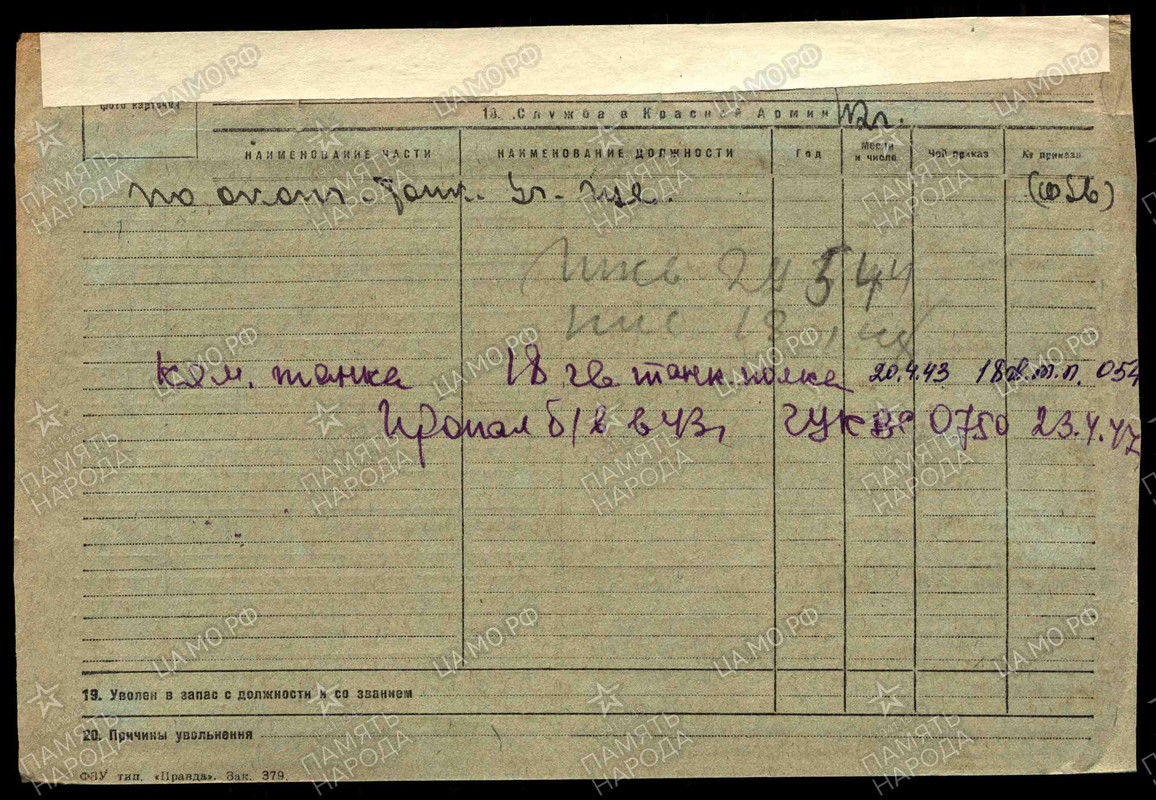 фото карточки
18. Служба в Красной Армии
НАИМЕНОВАНИЕ ЧАСТИ НАИМЕНОВАНИЕ ДОЛЖНОСТИ Год Месяц и число Чей приказ № приказа
по оконч. танк. уч-ща.
24 5 44
18
Ком. танка 18 гв танк. полка 20.4.43 18 гв.т.п. 054
Пропал б/в в 43г ГУК ВС 0750 23.4.47
19. Уволен в запас с должности и со званием
20. Причины увольнения
ФЗУ тип. «Правда». Зак. 379.
ЦАМО.РФ
ПАМЯТЬ НАРОДА